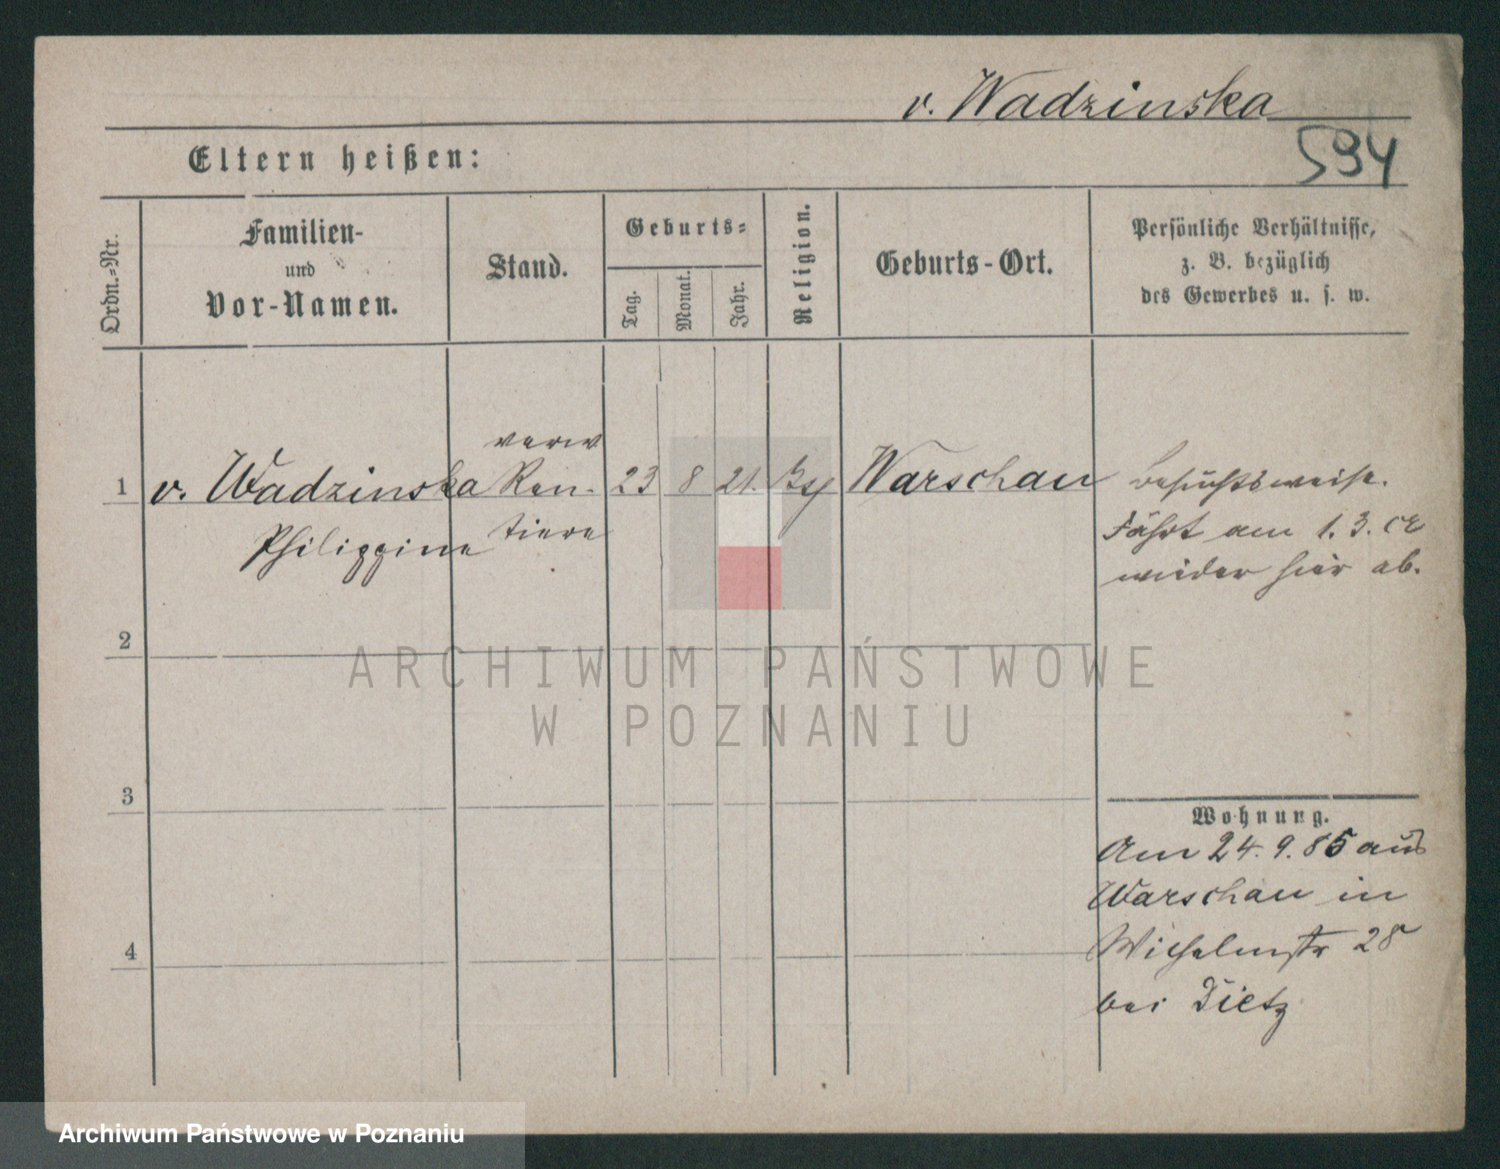 v. Wadzinska
594
Eltern heißen:
Ordn.-Nr.
Familien-
und
Vor-Namen.
Stand.
Geburts-
Tag.
Monat.
Jahr.
Religion.
Geburts-Ort.
Persönliche Verhältnisse,
z. B. bezüglich
des Gewerbes u. s. w.
verw
1 v. Wadzinska Ren- 23 8 21. Warschau besuchsweise.
Philippine tiere
Fährt am 1. 3. cr
wieder hier ab.
2
ARCHIWUM PAŃSTWOWE
W POZNANIU
3
Wohnung.
Am 24. 9. 85 aus
Warschau in
4
Wilhelmstr 28
bei Dietz
Archiwum Państwowe w Poznaniu